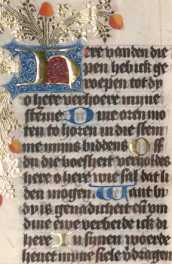 Here van den die
pen heb ic ge
roepen tot dy
o here verhoere mijne
stemme Dine oren mo
ten to horen in die stem
me mijns biddens Off
du die boesheit verholdes
here o here wie sal dat li
den mogen Want bi
dy is genadicheit en um
dine ewe verbeide ic di
here In sijnen woerde
heuet mijne siele